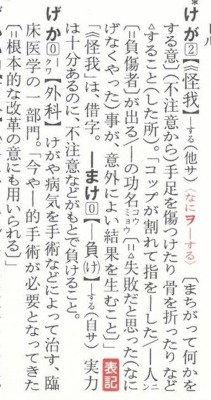 *けが②【怪我】―する(他サ)〈なにヲ―する〉〔まちがって何かを
する意〕(不注意から)手足を傷つけたり骨を折ったりなど
△すること(した所)。「コップが割れて指を―した/―人ニン
〔=負傷者〕が出る/―の功名コウミョウ〔↑△失敗だと思った(なに
げなくやった)事が、意外によい結果を生むこと〕」 表記
「《怪我》」は、借字。 ―まけ⓪【―負け】―する(自サ) 実力
は十分あるのに、不注意などがもとで負けること。
げか⓪クワ【外科】けがや病気を手術などによって治す、臨
床医学の一部門。「今や―的手術が必要となってきた
〔=根本的な改革の意にも用いられる〕」